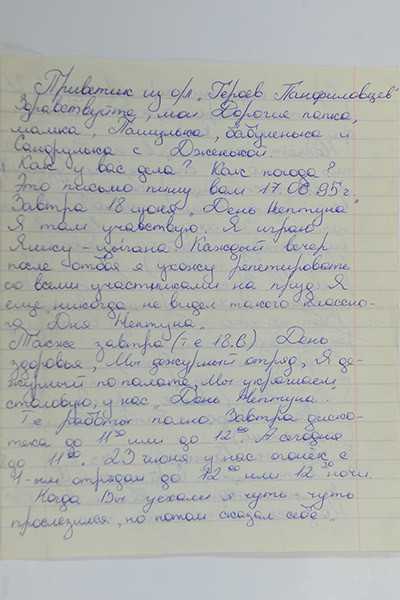 Приветик из о/л „Героев Панфиловцев"
Здравствуйте, мои Дорогие папка,
мамка, Пашулька, бабуленька и
Сандрулька с Дженькой.
Как у вас дела? Как погода?
Это письмо пишу вам 17.06.95 г.
Завтра 18 июня „День Нептуна"
Я там учавствую. Я играю
Яшку-цыгана. Каждый вечер
после отбоя я ухожу репетировать
со всеми участниками на пруд. Я
еще никогда не видел такого классно-
го Дня Нептуна.
Также завтра (т е 18.6) День
здоровья, Мы дежурный отряд, Я де-
журный по палате, Мы украшаем
столовую, у нас „День Нептуна.
Т е работы полно. Завтра диско-
тека до 11³⁰ или до 12⁰⁰. А сегодня
до 11⁰⁰. 23 июня у нас огонек с
1-ым отрядом до 12⁰⁰ или 12³⁰ ночи.
Когда Вы уехали я чуть-чуть
прослезился, но потом сказал себе „